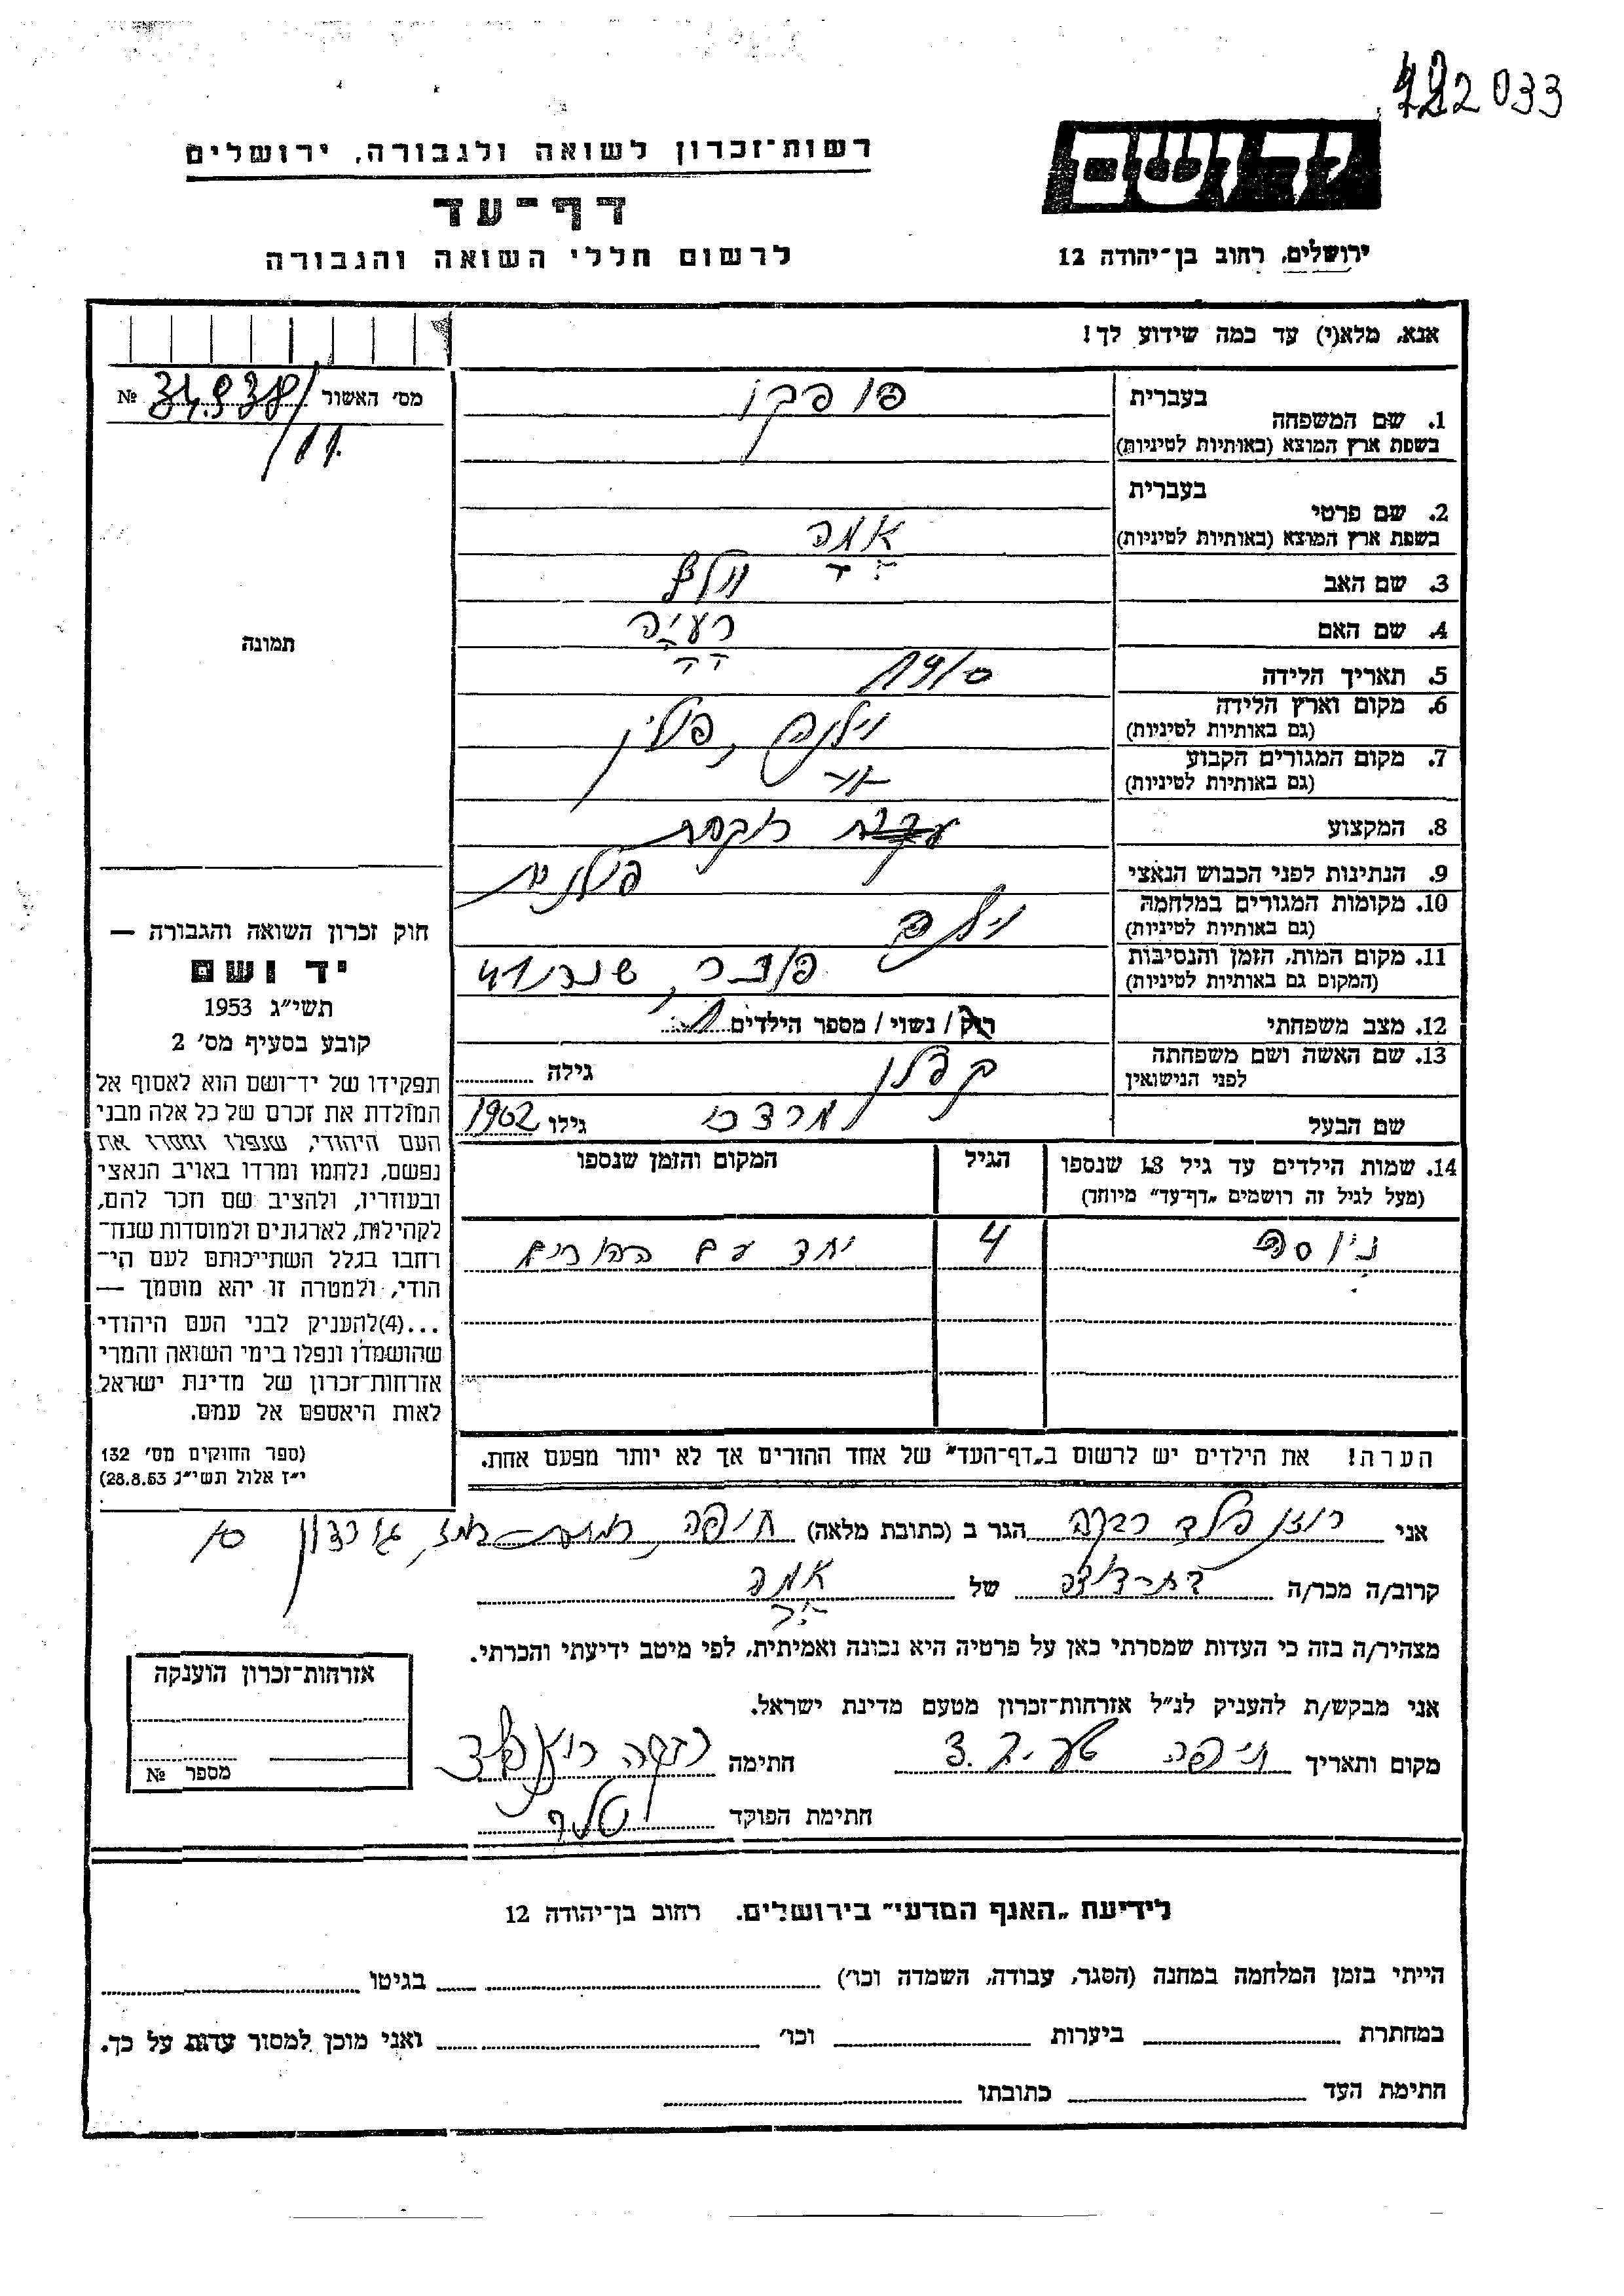 722033
יד ושם
רשות־זכרון לשואה ולגבורה, ירושלים
דף־עד
ירושלים, רחוב בן־יהודה 12
לרשום חללי השואה והגבורה
אנא, מלא(י) עד כמה שידוע לך!
מס׳ האשור № 34938/
11
1. שם המשפחה
בעברית
בשפת ארץ המוצא (באותיות לטיניות)
פופקו
2. שם פרטי
בעברית
בשפת ארץ המוצא (באותיות לטיניות)
אמה
3. שם האב
וולף
4. שם האם
רעיה
תמונה
5. תאריך הלידה
1910
6. מקום וארץ הלידה
(גם באותיות לטיניות)
וילנה, פולין
7. מקום המגורים הקבוע
(גם באותיות לטיניות)
8. המקצוע
רוקחת
9. הנתינות לפני הכבוש הנאצי
פולנית
10. מקומות המגורים במלחמה
(גם באותיות לטיניות)
וילנה
11. מקום המות, הזמן והנסיבות
(המקום גם באותיות לטיניות)
פונר, שנת 41
12. מצב משפחתי
רוק / נשוי / מספר הילדים 1
13. שם האשה ושם משפחתה
לפני הנישואין
קפלן
גילה
שם הבעל
מרדכי
גילו 1902
14. שמות הילדים עד גיל 18 שנספו
(מעל לגיל זה רושמים „דף־עד״ מיוחד)
הגיל
המקום והזמן שנספו
ניוסה
4
יחד עם ההורים
הערה! את הילדים יש לרשום ב„דף־העד״ של אחד ההורים אך לא יותר מפעם אחת.
חוק זכרון השואה והגבורה —
יד ושם
תשי״ג 1953
קובע בסעיף מס׳ 2
תפקידו של יד־ושם הוא לאסוף אל
המולדת את זכרם של כל אלה מבני
העם היהודי, שנפלו ומסרו את
נפשם, נלחמו ומרדו באויב הנאצי
ובעוזריו, ולהציב שם וזכר להם,
לקהילות, לארגונים ולמוסדות שנח־
רחבו בגלל השתייכותם לעם הי־
הודי, ולמטרה זו יהא מוסמך —
...(4)להעניק לבני העם היהודי
שהושמדו ונפלו בימי השואה והמרי
אזרחות־זכרון של מדינת ישראל
לאות היאספם אל עמם.
(ספר החוקים מס׳ 132
י״ז אלול תשי״ג 28.8.53)
אני רוזנפלד רבקה הגר ב (כתובת מלאה) חיפה, רמת־רמז, גורדון 10
קרוב/ה מכר/ה של אמה
מצהיר/ה בזה כי העדות שמסרתי כאן על פרטיה היא נכונה ואמיתית, לפי מיטב ידיעתי והכרתי.
אני מבקש/ת להעניק לנ״ל אזרחות־זכרון מטעם מדינת ישראל.
מקום ותאריך חיפה
חתימה רבקה רוזנפלד
חתימת הפוקד
אזרחות־זכרון הוענקה
מספר №
לידיעת „האגף המדעי״ בירושלים. רחוב בן־יהודה 12
הייתי בזמן המלחמה במחנה (הסגר, עבודה, השמדה וכו׳) בגיטו
במחתרת ביערות וכו׳ ואני מוכן למסור עדות על כך.
חתימת העד כתובתו